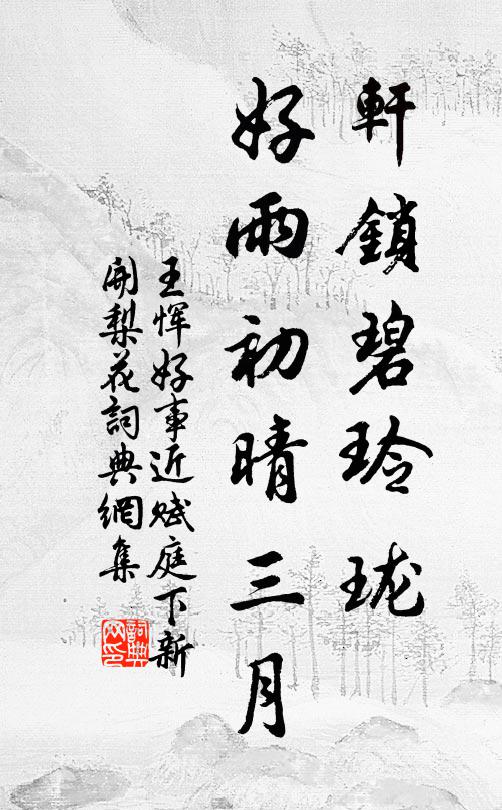 軒鎖碧玲珑
好雨初晴三月
王恽好事近赋庭下新
開梨花詞典網集
詞典网印